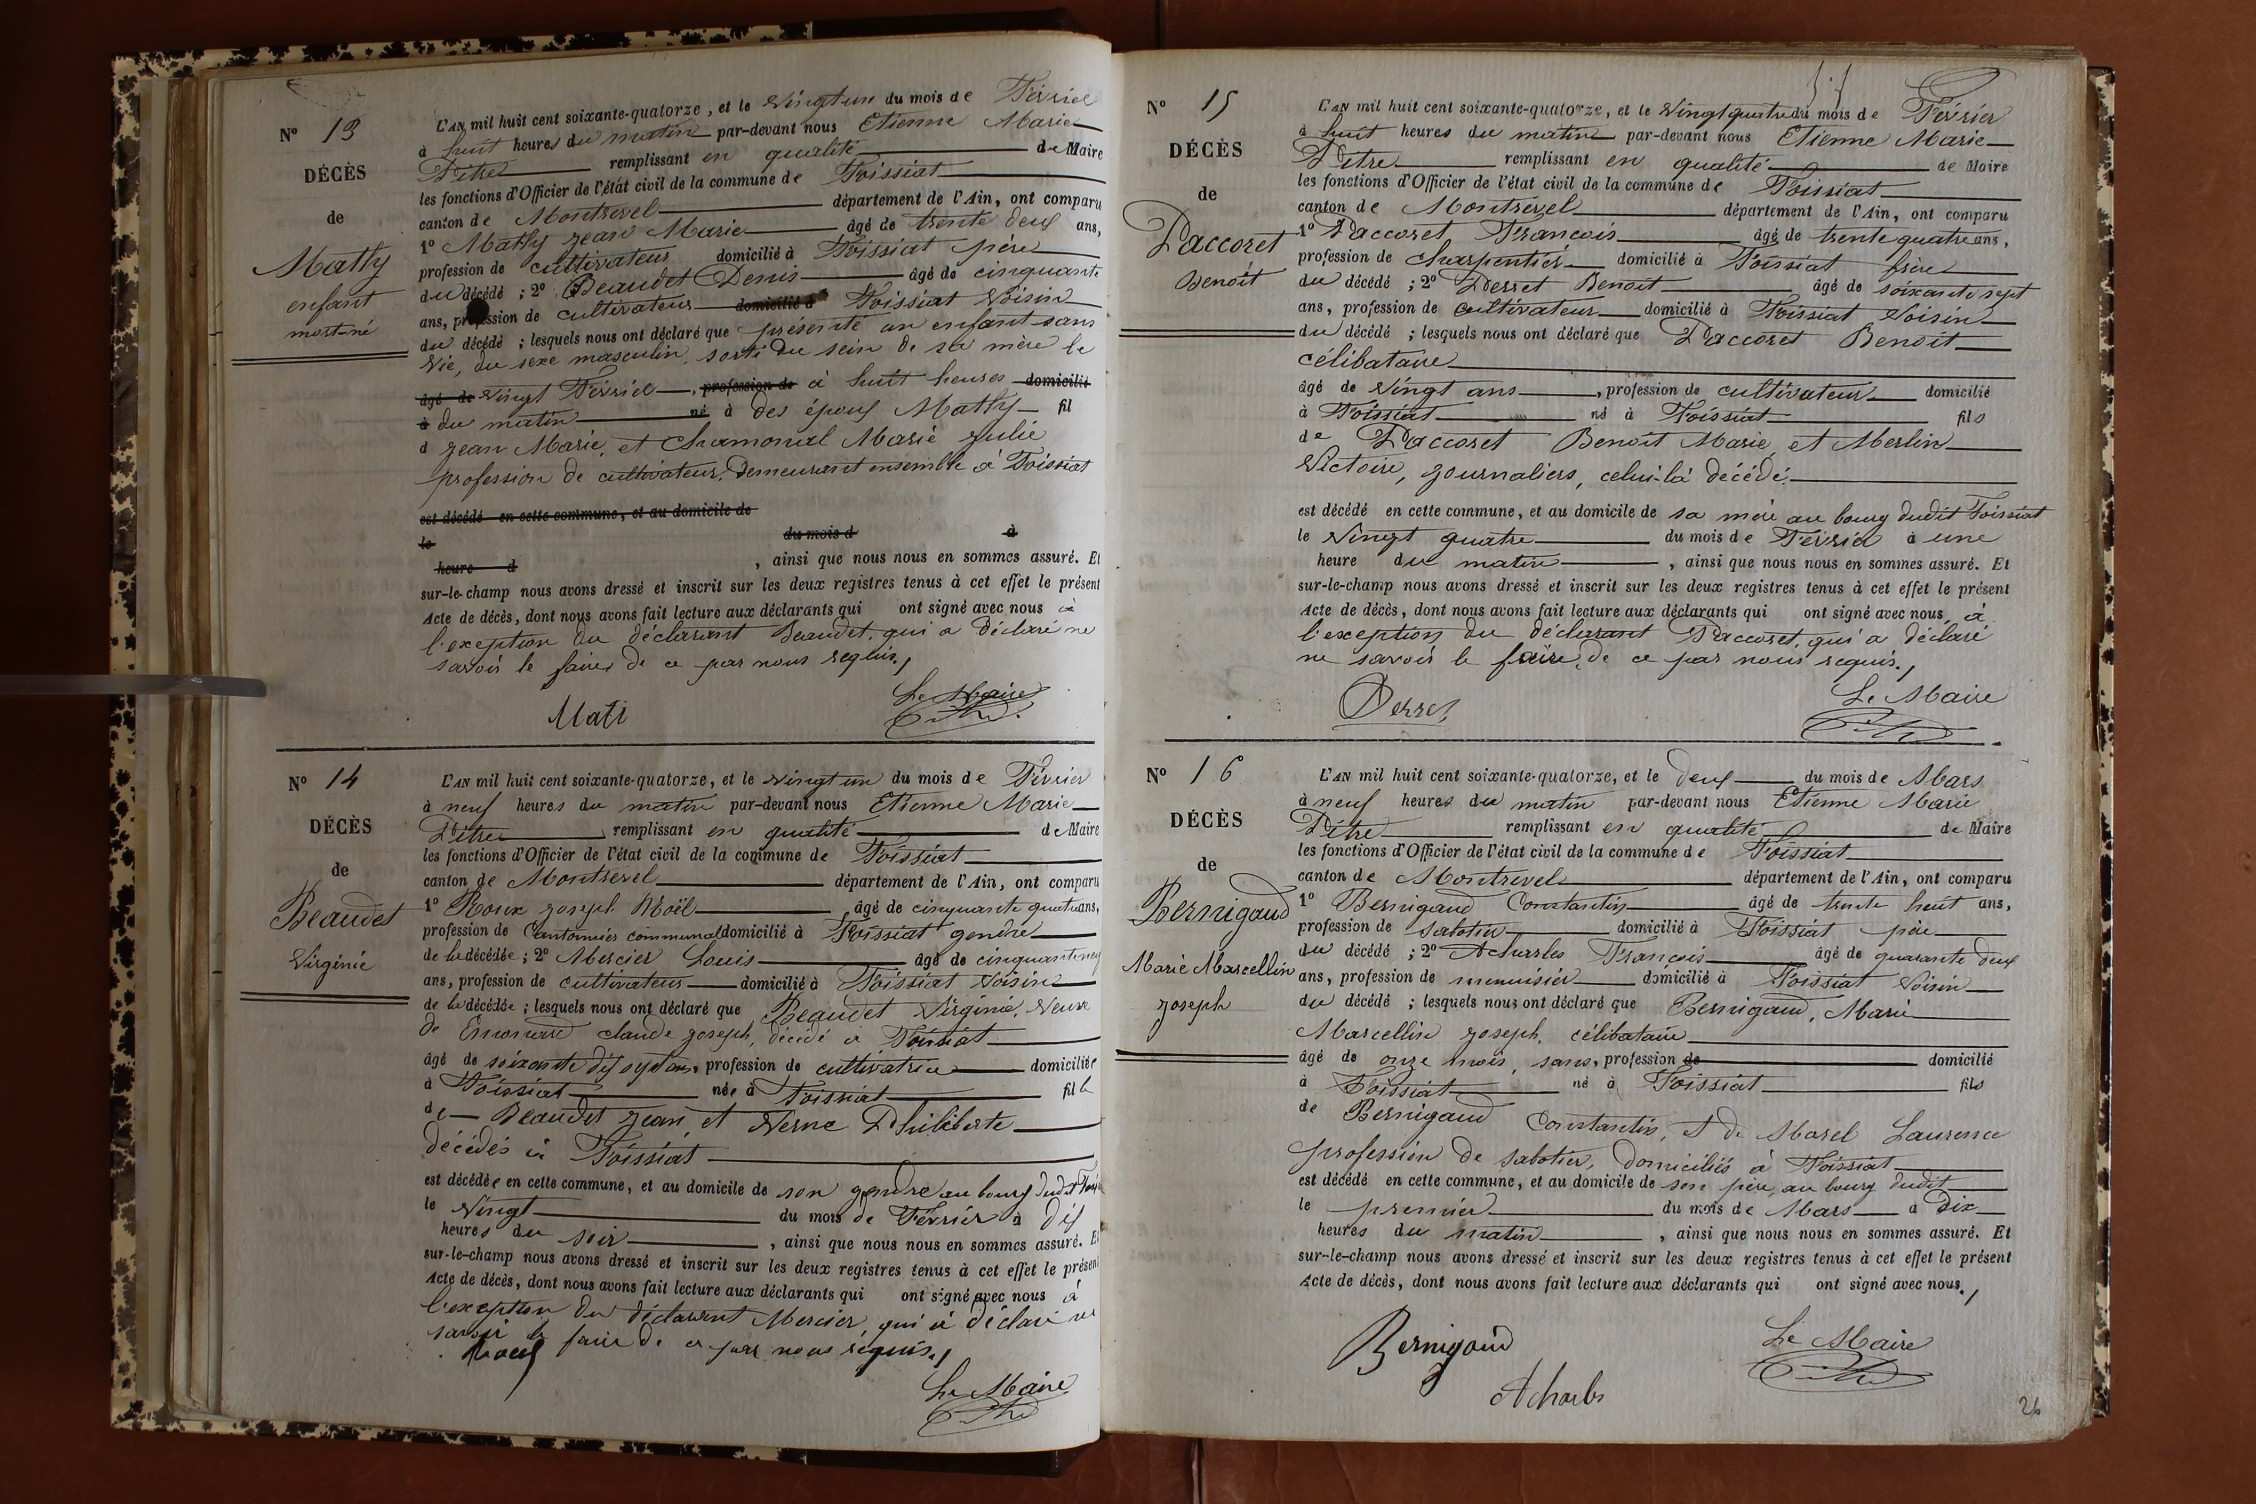 N° 13
DÉCÈS
de
Mathy
enfant
mort-né
L'AN mil huit cent soixante-quatorze, et le vingt un du mois de Février
à huit heures du matin par-devant nous Etienne Marie
remplissant en qualité de Maire
les fonctions d'Officier de l'état civil de la commune de Foissiat
canton de Montrevel département de l'Ain, ont comparu
1° Mathy Jean Marie âgé de trente deux ans,
profession de cultivateur domicilié à Foissiat père
du décédé ; 2° Beaudet Denis âgé de cinquante
ans, profession de cultivateur domicilié à Foissiat voisin
du décédé ; lesquels nous ont déclaré que présenté un enfant sans
vie, du sexe masculin, sorti du sein de sa mère le
âgé de vingt Février, profession de à huit heures domicilié
à du matin né à des époux Mathy fil
d Jean Marie, et Chamonal Marie Julie
profession de cultivateur, demeurant ensemble à Foissiat
est décédé en cette commune, et au domicile de
le du mois d à
heure d , ainsi que nous nous en sommes assuré. Et
sur-le-champ nous avons dressé et inscrit sur les deux registres tenus à cet effet le présent
Acte de décès, dont nous avons fait lecture aux déclarants qui ont signé avec nous à
l'exception du déclarant Beaudet, qui a déclaré ne
savoir le faire de ce par nous requis,
Mati
Le Maire
N° 14
DÉCÈS
de
Beaudet
Virginie
L'AN mil huit cent soixante-quatorze, et le vingt un du mois de Février
à neuf heures du matin par-devant nous Etienne Marie
remplissant en qualité de Maire
les fonctions d'Officier de l'état civil de la commune de Foissiat
canton de Montrevel département de l'Ain, ont comparu
1° Roux Joseph Noël âgé de cinquante quatre ans,
profession de Cantonnier communal domicilié à Foissiat gendre
de la décédée ; 2° Mercier Louis âgé de cinquante neuf
ans, profession de cultivateur domicilié à Foissiat voisin
de la décédée ; lesquels nous ont déclaré que Beaudet Virginie, veuve
de claude Joseph, décédé à Foissiat
âgé de soixante dix sept ans, profession de cultivatrice domiciliée
à Foissiat née à Foissiat fille
de Beaudet Jean, et Verne Philiberte
décédés à Foissiat
est décédée en cette commune, et au domicile de son gendre au bourg dudit
le vingt du mois de Février à dix
heures du soir , ainsi que nous nous en sommes assuré. Et
sur-le-champ nous avons dressé et inscrit sur les deux registres tenus à cet effet le présent
Acte de décès, dont nous avons fait lecture aux déclarants qui ont signé avec nous à
l'exception du déclarant Mercier, qui a déclaré ne
savoir le faire de ce par nous requis,
Le Maire
N° 15
DÉCÈS
de
Paccoret
Benoît
L'AN mil huit cent soixante-quatorze, et le vingt quatre du mois de Février
à huit heures du matin par-devant nous Etienne Marie
remplissant en qualité de Maire
les fonctions d'Officier de l'état civil de la commune de Foissiat
canton de Montrevel département de l'Ain, ont comparu
1° Paccoret François âgé de trente quatre ans,
profession de charpentier domicilié à Foissiat frère
du décédé ; 2° Perret Benoit âgé de soixante sept
ans, profession de cultivateur domicilié à Foissiat voisin
du décédé ; lesquels nous ont déclaré que Paccoret Benoit
célibataire
âgé de vingt ans, profession de cultivateur domicilié
à Foissiat né à Foissiat fils
de Paccoret Benoit Marie, et Merlin
Victoire, journaliers, celui-là décédé.
est décédé en cette commune, et au domicile de sa mère au bourg dudit Foissiat
le vingt quatre du mois de Février à une
heure du matin , ainsi que nous nous en sommes assuré. Et
sur-le-champ nous avons dressé et inscrit sur les deux registres tenus à cet effet le présent
Acte de décès, dont nous avons fait lecture aux déclarants qui ont signé avec nous à
l'exception du déclarant Paccoret, qui a déclaré
ne savoir le faire, de ce par nous requis.,
Perret
Le Maire
N° 16
DÉCÈS
de
Bernigaud
Marie Marcellin
Joseph
L'AN mil huit cent soixante-quatorze, et le deux du mois de Mars
à neuf heures du matin par-devant nous Etienne Marie
remplissant en qualité de Maire
les fonctions d'Officier de l'état civil de la commune de Foissiat
canton de Montrevel département de l'Ain, ont comparu
1° Bernigaud Constantin âgé de trente huit ans,
profession de sabotier domicilié à Foissiat père
du décédé ; 2° Acharles François âgé de quarante deux
ans, profession de menuisier domicilié à Foissiat voisin
du décédé ; lesquels nous ont déclaré que Bernigaud, Marie
Marcellin Joseph, célibataire
âgé de onze mois, sans, profession de domicilié
à Foissiat né à Foissiat fils
de Bernigaud Constantin, et de Morel Laurence
profession de sabotier, domiciliés à Foissiat
est décédé en cette commune, et au domicile de son père, au bourg dudit
le premier du mois de Mars à Dix
heures du matin , ainsi que nous nous en sommes assuré. Et
sur-le-champ nous avons dressé et inscrit sur les deux registres tenus à cet effet le présent
Acte de décès, dont nous avons fait lecture aux déclarants qui ont signé avec nous.,
Bernigaud
Acharles
Le Maire
26